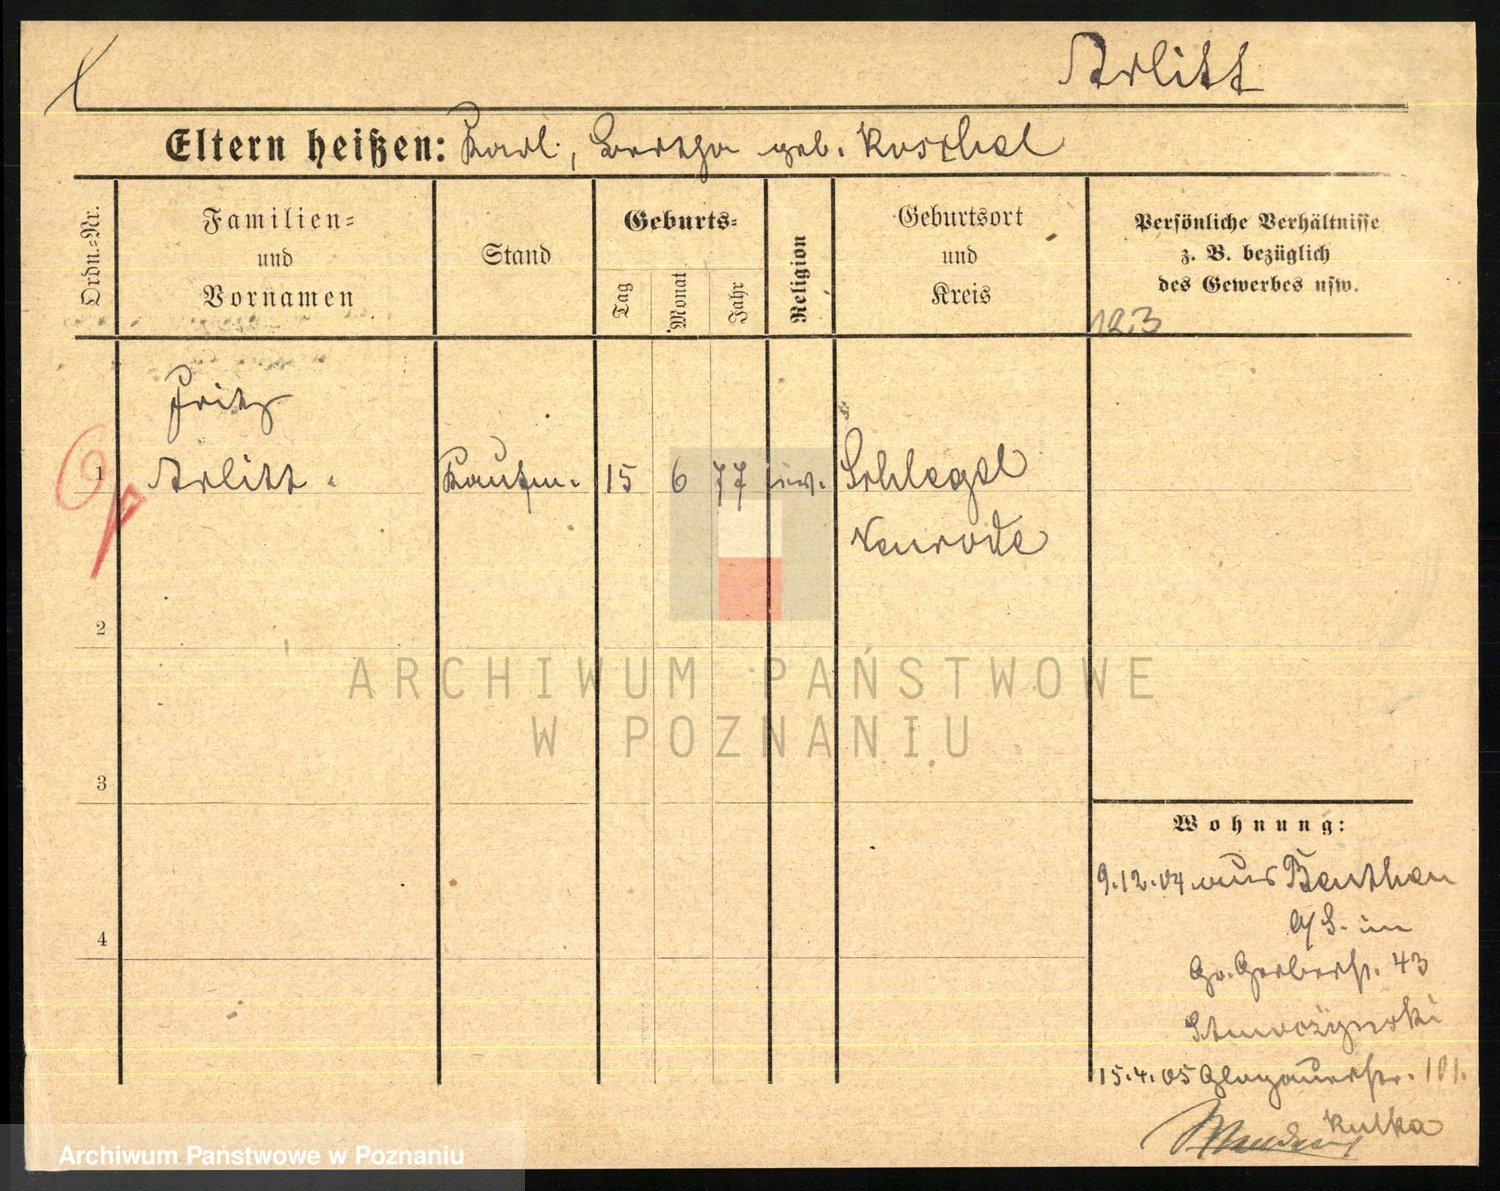 Arlitt
Eltern heißen: Karl, Bertha geb. Koschel
Ordn.=Nr.
Familien=
und
Vornamen
Stand
Geburts=
Tag
Monat
Jahr
Religion
Geburtsort
und
Kreis
Persönliche Verhältnisse
z. B. bezüglich
des Gewerbes usw.
123
Fritz
1 Arlitt. Kaufm. 15 6 77 Schlegel
Neurode
2
ARCHIWUM PAŃSTWOWE
W POZNANIU
3
Wohnung:
9.12.04 aus Beuthen
4
Gr. Gerberst. 43
15.4.05 Glogauerstr. 101.
Kulka
Archiwum Państwowe w Poznaniu